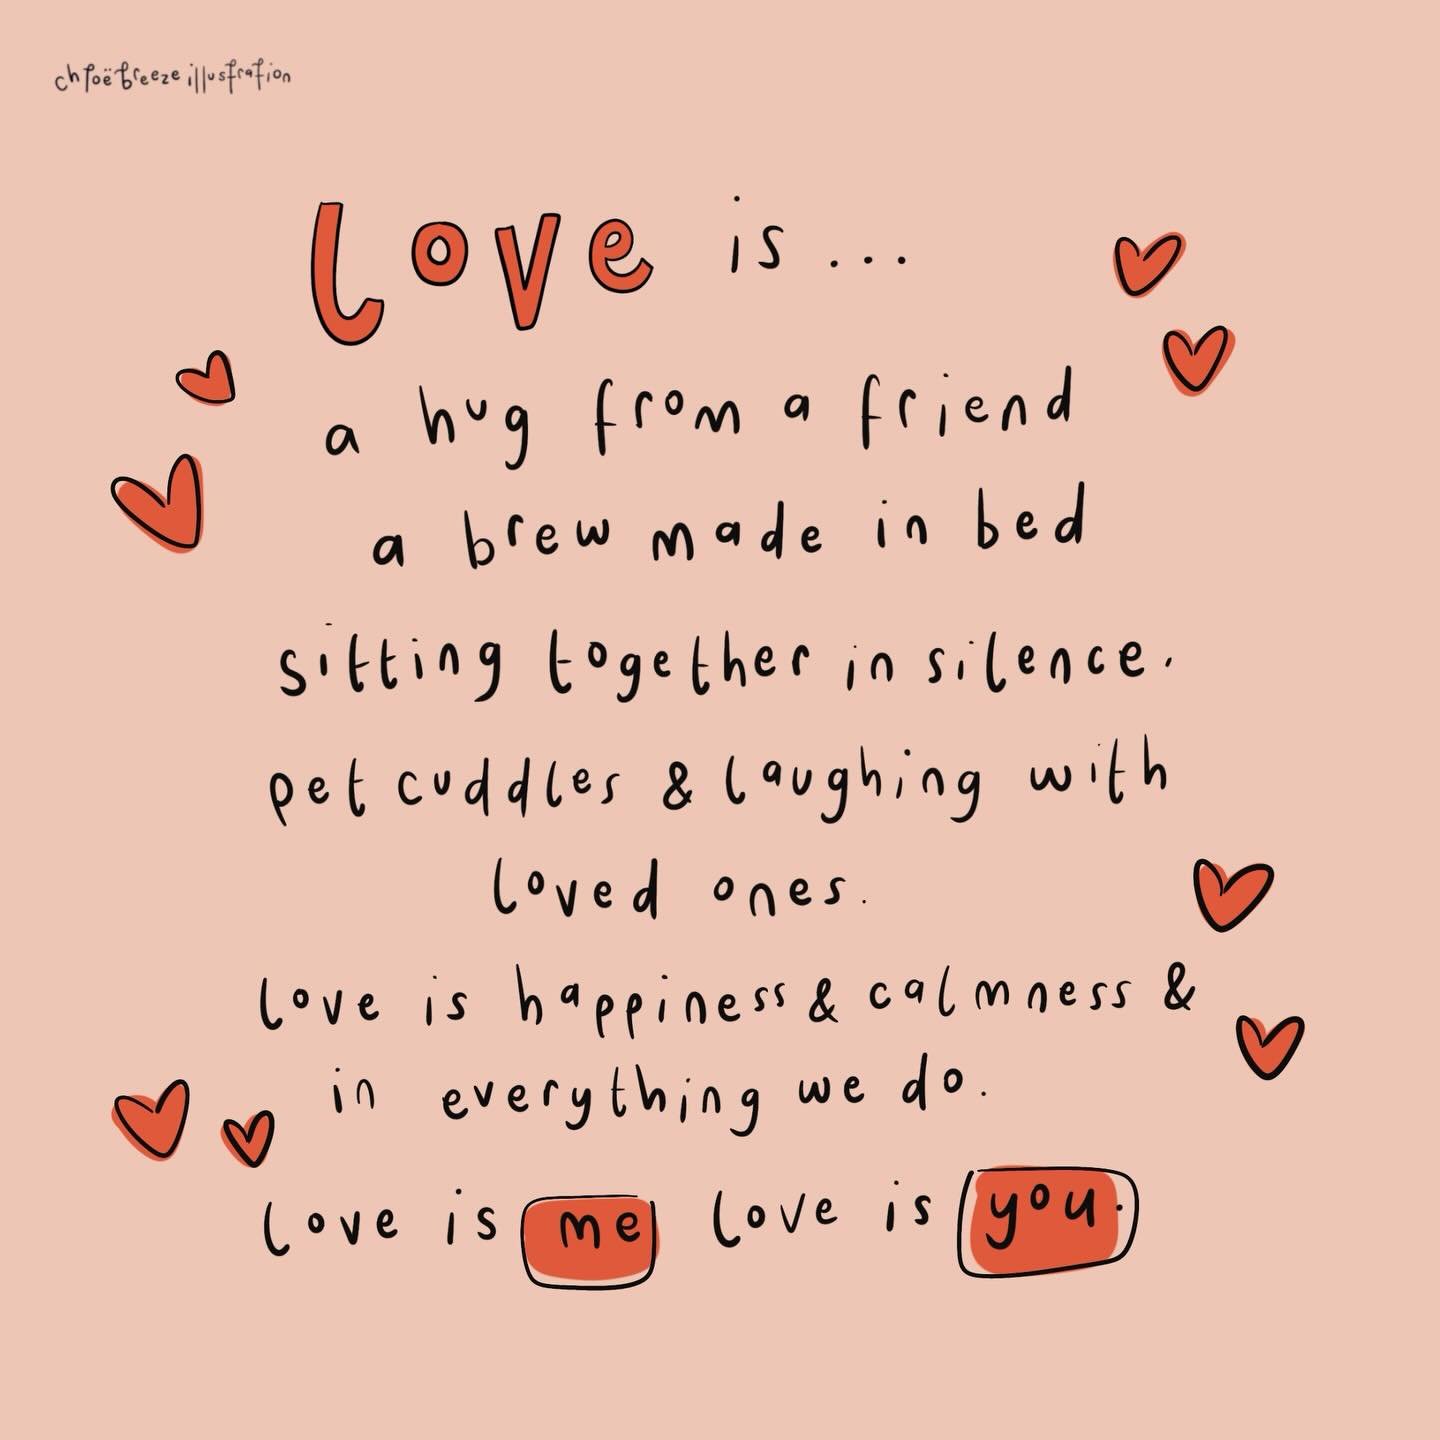 chloëbreezeillustration
love is...
a hug from a friend
a brew made in bed
sitting together in silence.
pet cuddles & laughing with
loved ones.
love is happiness & calmness &
in everything we do.
love is me love is you.